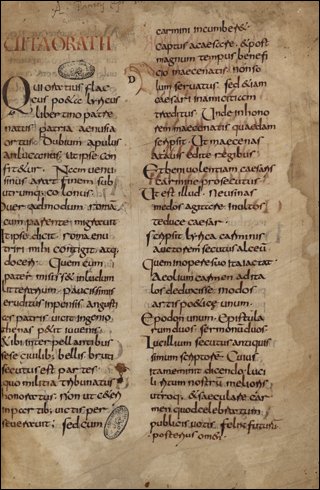 A Ramsey
CITA ORATII
Qui oratius flac
cus po&a lyricus
libertino patre
natus patria uenusia
ortus. Dubium apulus
anlucanus; ut ipse con
fit&ur. Nam uenu
sinus arat finem sub
utrumq; colonus
Puer admodum roma
cum parente migrauit
ut ipse dicit. romae nu
triri mihi contigit atq;
doceri. Quem cum
pater misiss& inludum
litterarum paucissimis
eruditus inpensis. angusti
as patris uicit ingenio
thenas p&iit iuuenis
& ibi inter pellantibus
sese ciuilib; bellis bruti
secutus est partes
quo militia tribunatus
honoratus. non ut c&eri
in partib; uictis per
seuerauit; sed cum
carmini incumber&
captus acaesare. & post
magnum tempus benefi
cio maecenatis. non so
lum seruatus. sed &iam
caesari inamicitiam
traditus Unde in hono
rem maecenatis quaedam
scripsit. Ut maecenas
atauis edite regibus
Etbenuolentiam caesaris
carmine prosecutus
Ut est illud. Neu sinas
medos aequitare inultos
te duce caesar.
scripsit lyrica carminis
auctorem secutus alceum
Quem in opere suo ita iactat
Aeolium carmen ad ita
los deduxisse modos
artis po&icae unum.
Epodon unum. Epistula
rum duos sermonum duos
Lucilium secutus antiquis
simum scriptorem. Cuius
ita meminit dicendo. luci
li ritum nostrum melioris
utroq; & saeculare car
men quod celebratum
publicis uotis. felix futurus
posteris omen.